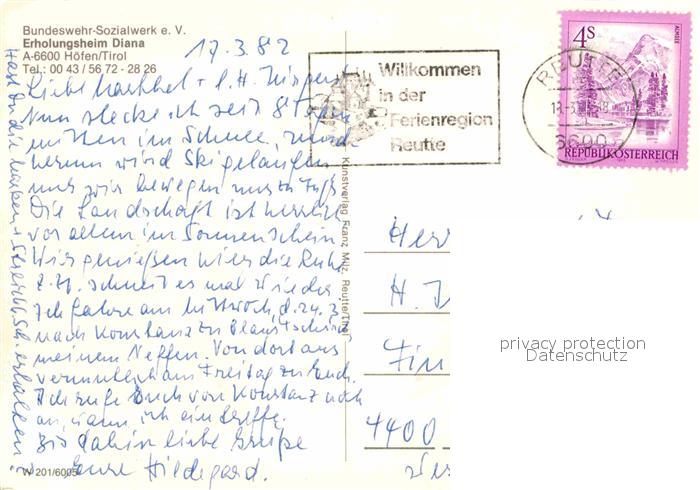 Bundeswehr-Sozialwerk e. V.
Erholungsheim Diana
A-6600 Höfen/Tirol
Tel.: 00 43 / 56 72 - 28 26
17.3.82
Liebe + l. H.
Nun stecke ich seit 8 Tagen
mitten im Schnee, rund
herum wird Ski gelaufen
nur wir bewegen uns zu Fuß.
Die Landschaft ist herrlich
vor allem im Sonnenschein.
Wir genießen hier die Ruhe.
z. Zt. schneit es mal wieder.
Ich fahre am Mittwoch, d. 24.3.
nach Konstanz zu
meinem Neffen. Von dort aus
vermutlich am Freitag zu Euch.
Ich rufe Euch von Konstanz noch
an, wann ich eintreffe.
Bis dahin liebe Grüße
Eure Hildegard.
Hast Du die Marken + erhalten
W 201/6005
Kunstverlag Franz Milz, Reutte/Tirol
Willkommen
in der
Ferienregion
Reutte
REUTTE
6600
4S
ALMSEE
REPUBLIK ÖSTERREICH
Herr
H.
4400
privacy protection
Datenschutz